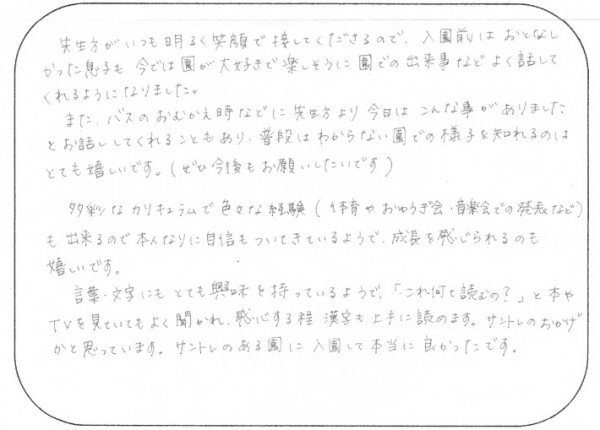 先生方がいつも明るく笑顔で接してくださるので、入園前はおとなし
かった息子も今では園が大好きで楽しそうに園での出来事などよく話して
くれるようになりました。
また、バスのおむかえ時などに先生方より今日はこんな事がありました
とお話ししてくれることもあり、普段はわからない園での様子を知れるのは
とても嬉しいです。(ぜひ今後もお願いしたいです)
多彩なカリキュラムで色々な経験(体育やおゆうぎ会・音楽会での発表など)
も出来るので本人なりに自信もついてきているようで、成長を感じられるのも
嬉しいです。
言葉・文字にもとても興味を持っているようで、「これ何て読むの?」と本や
TVを見ていてもよく聞かれ、感心する程漢字も上手に読めます。サントレのおかげ
かと思っています。サントレのある園に入園して本当に良かったです。